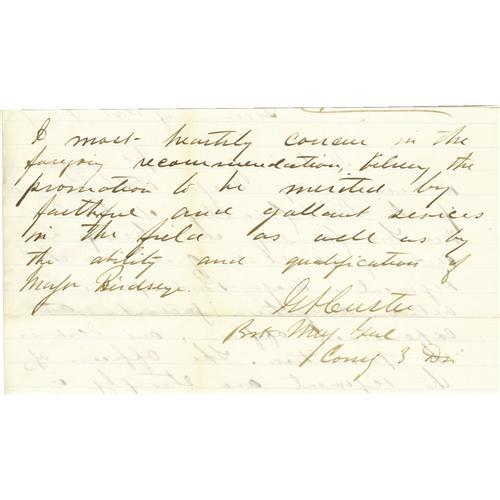 I most heartily concur in the
foregoing recommendation, the
promotion to be merited by
faithful and gallant services
in the field as well as by
the ability and qualification of
Major Birdseye.
GACuster
Bvt Maj Genl
Comg 3 Div